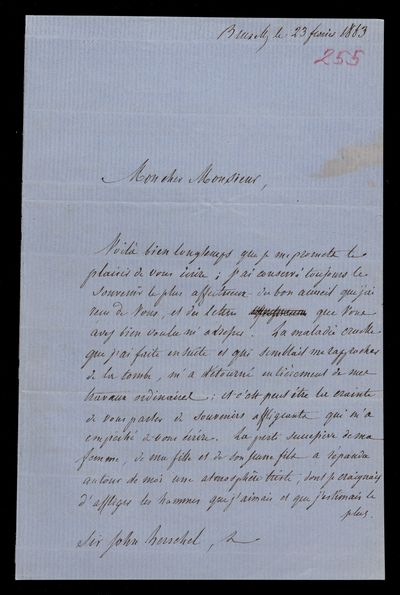 Bruxelles le 23 février 1863
255
Mon cher Monsieur,
Voilà bien longtemps que je me promets le
plaisir de vous écrire ; j'ai conservé toujours le
souvenir le plus affectueux du bon accueil que j'ai
reçu de Vous, et des lettres que Vous
avez bien voulu m'adresser. La maladie cruelle
que j'ai faite ensuite et qui semblait me rapprocher
de la tombe, m'a détourné entièrement de mes
travaux ordinaires ; et c'est peut être la crainte
de vous parler de souvenirs affligeants qui m'a
empêché de vous écrire. La perte successive de ma
femme, de ma fille et de son jeune fils a répandu
autour de moi une atmosphère triste, dont je craignais
d'affliger les hommes que j'aimais et que j'estimais le
plus.
Sir John Herschel,